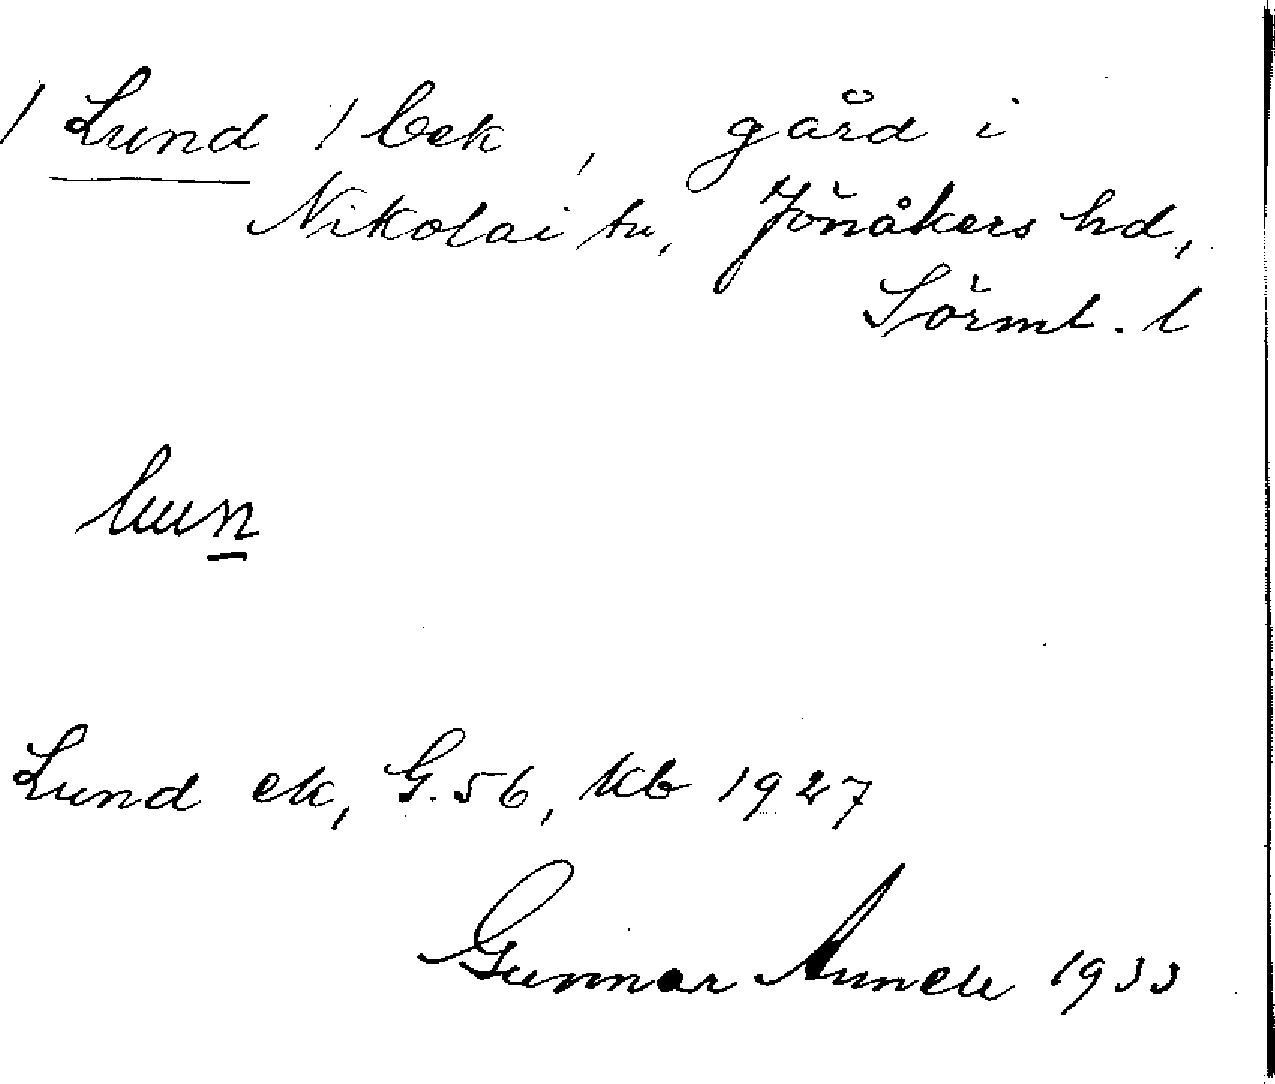 / Lund / bek, gård i
Nikolai sn, Jönåkers hd,
Sörml. l
lun
Lund ek, G. 56, kb 1927
Gunnar 1933